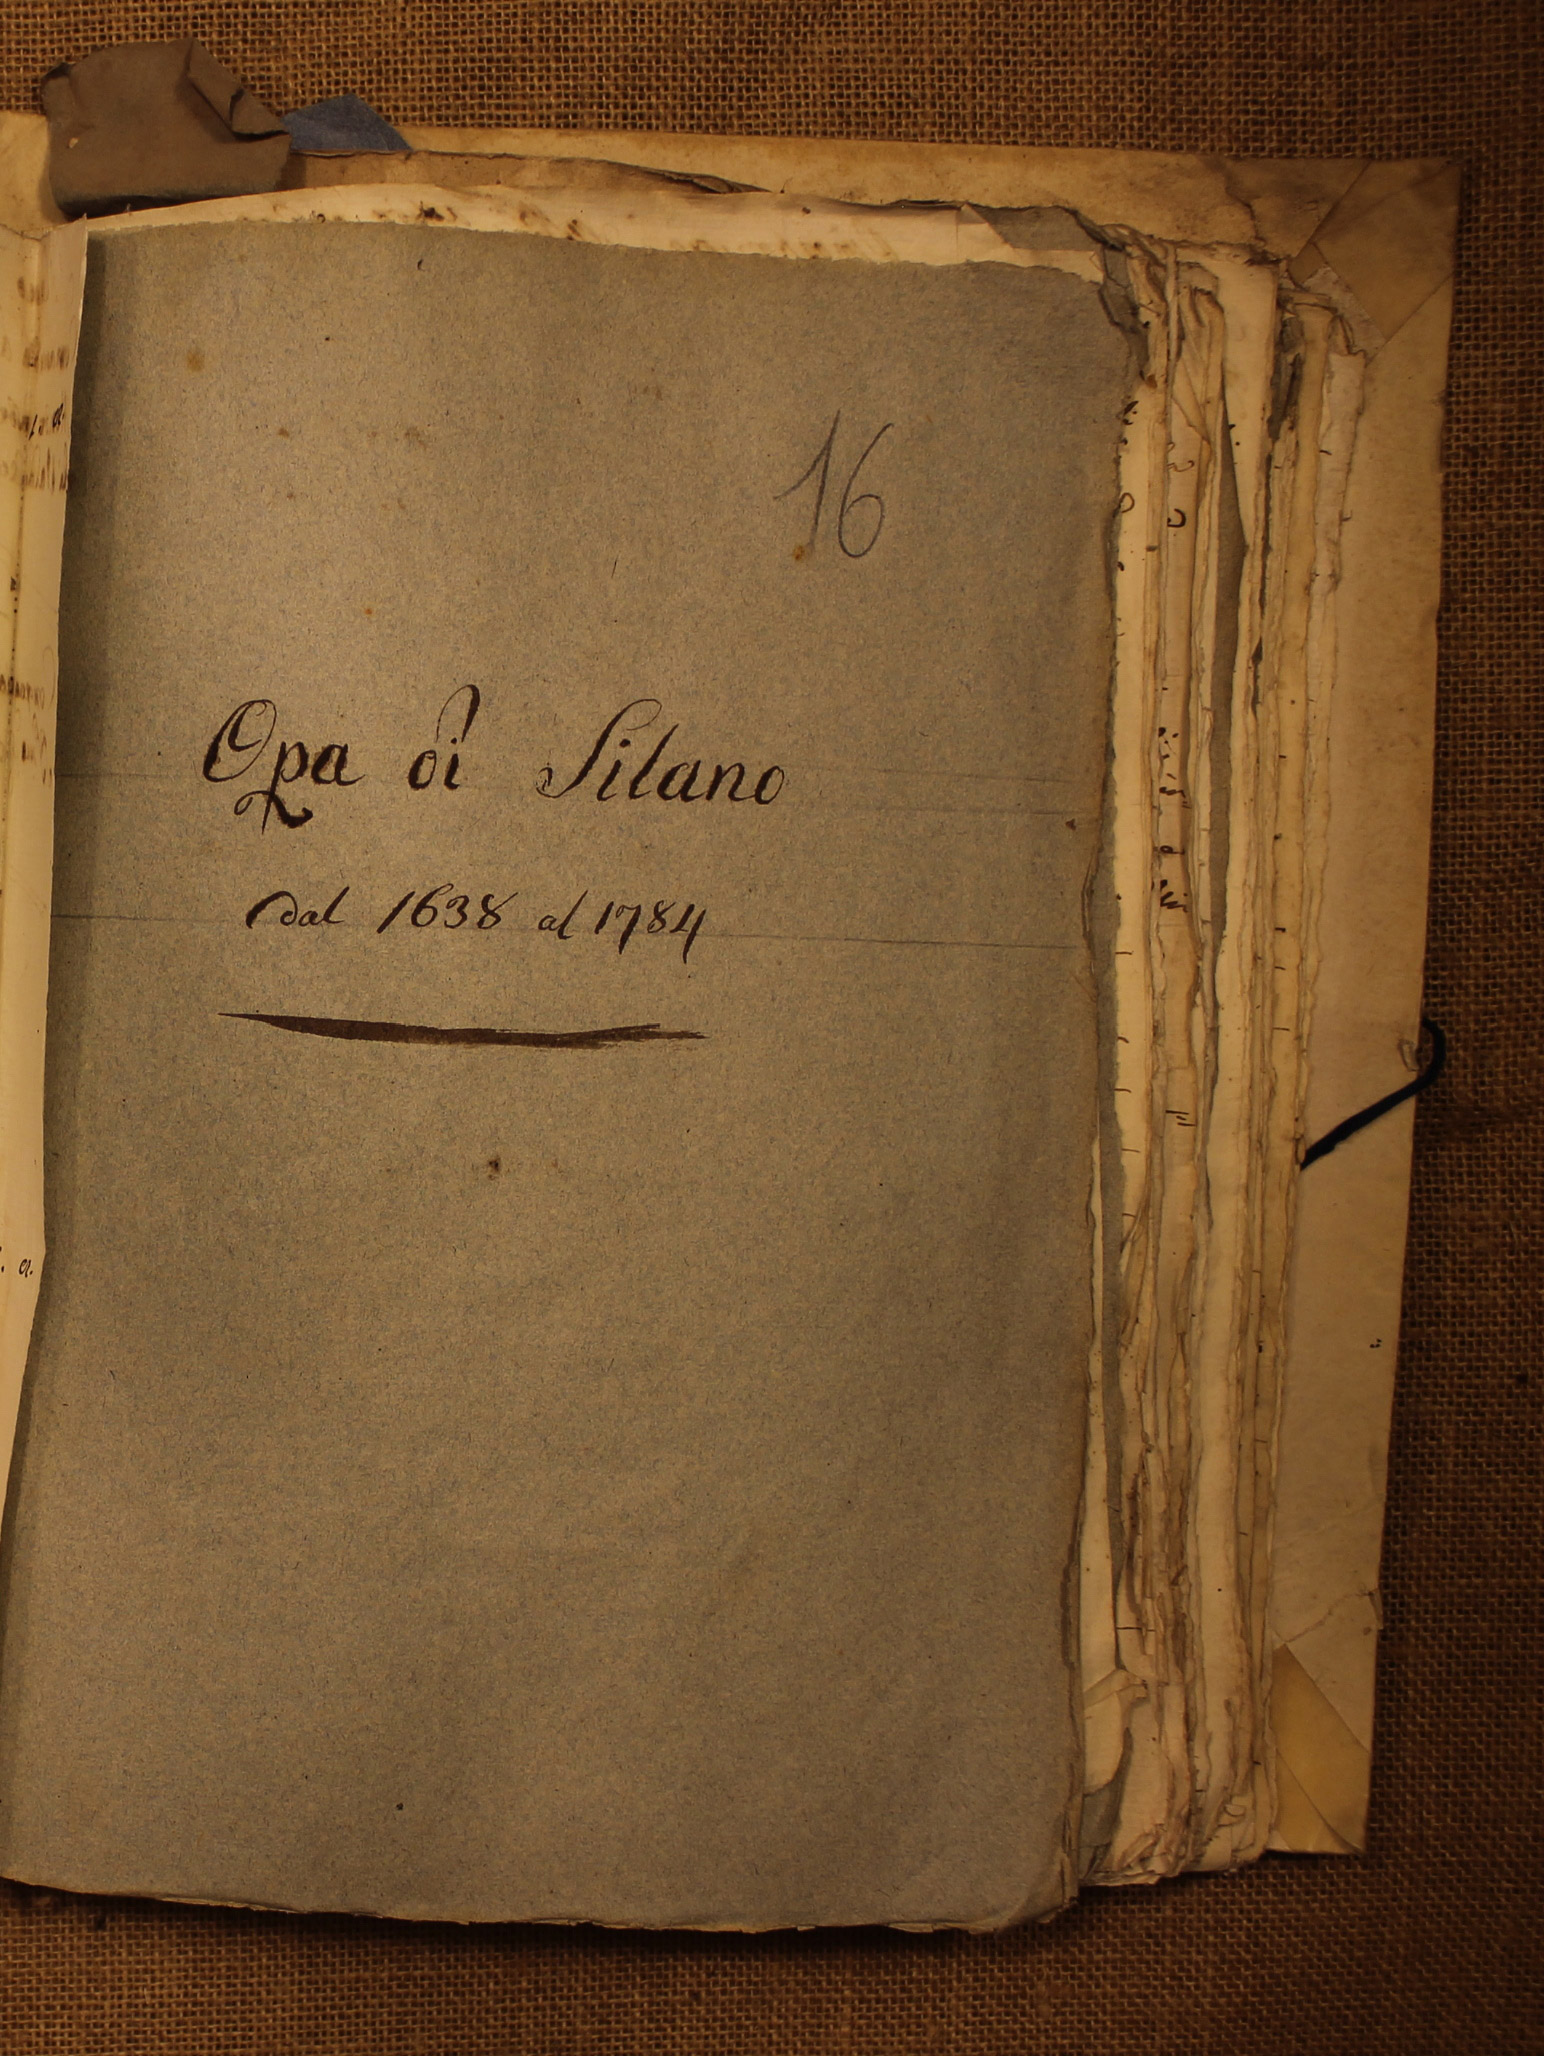 16
Opa di Silano
dal 1638 al 1784